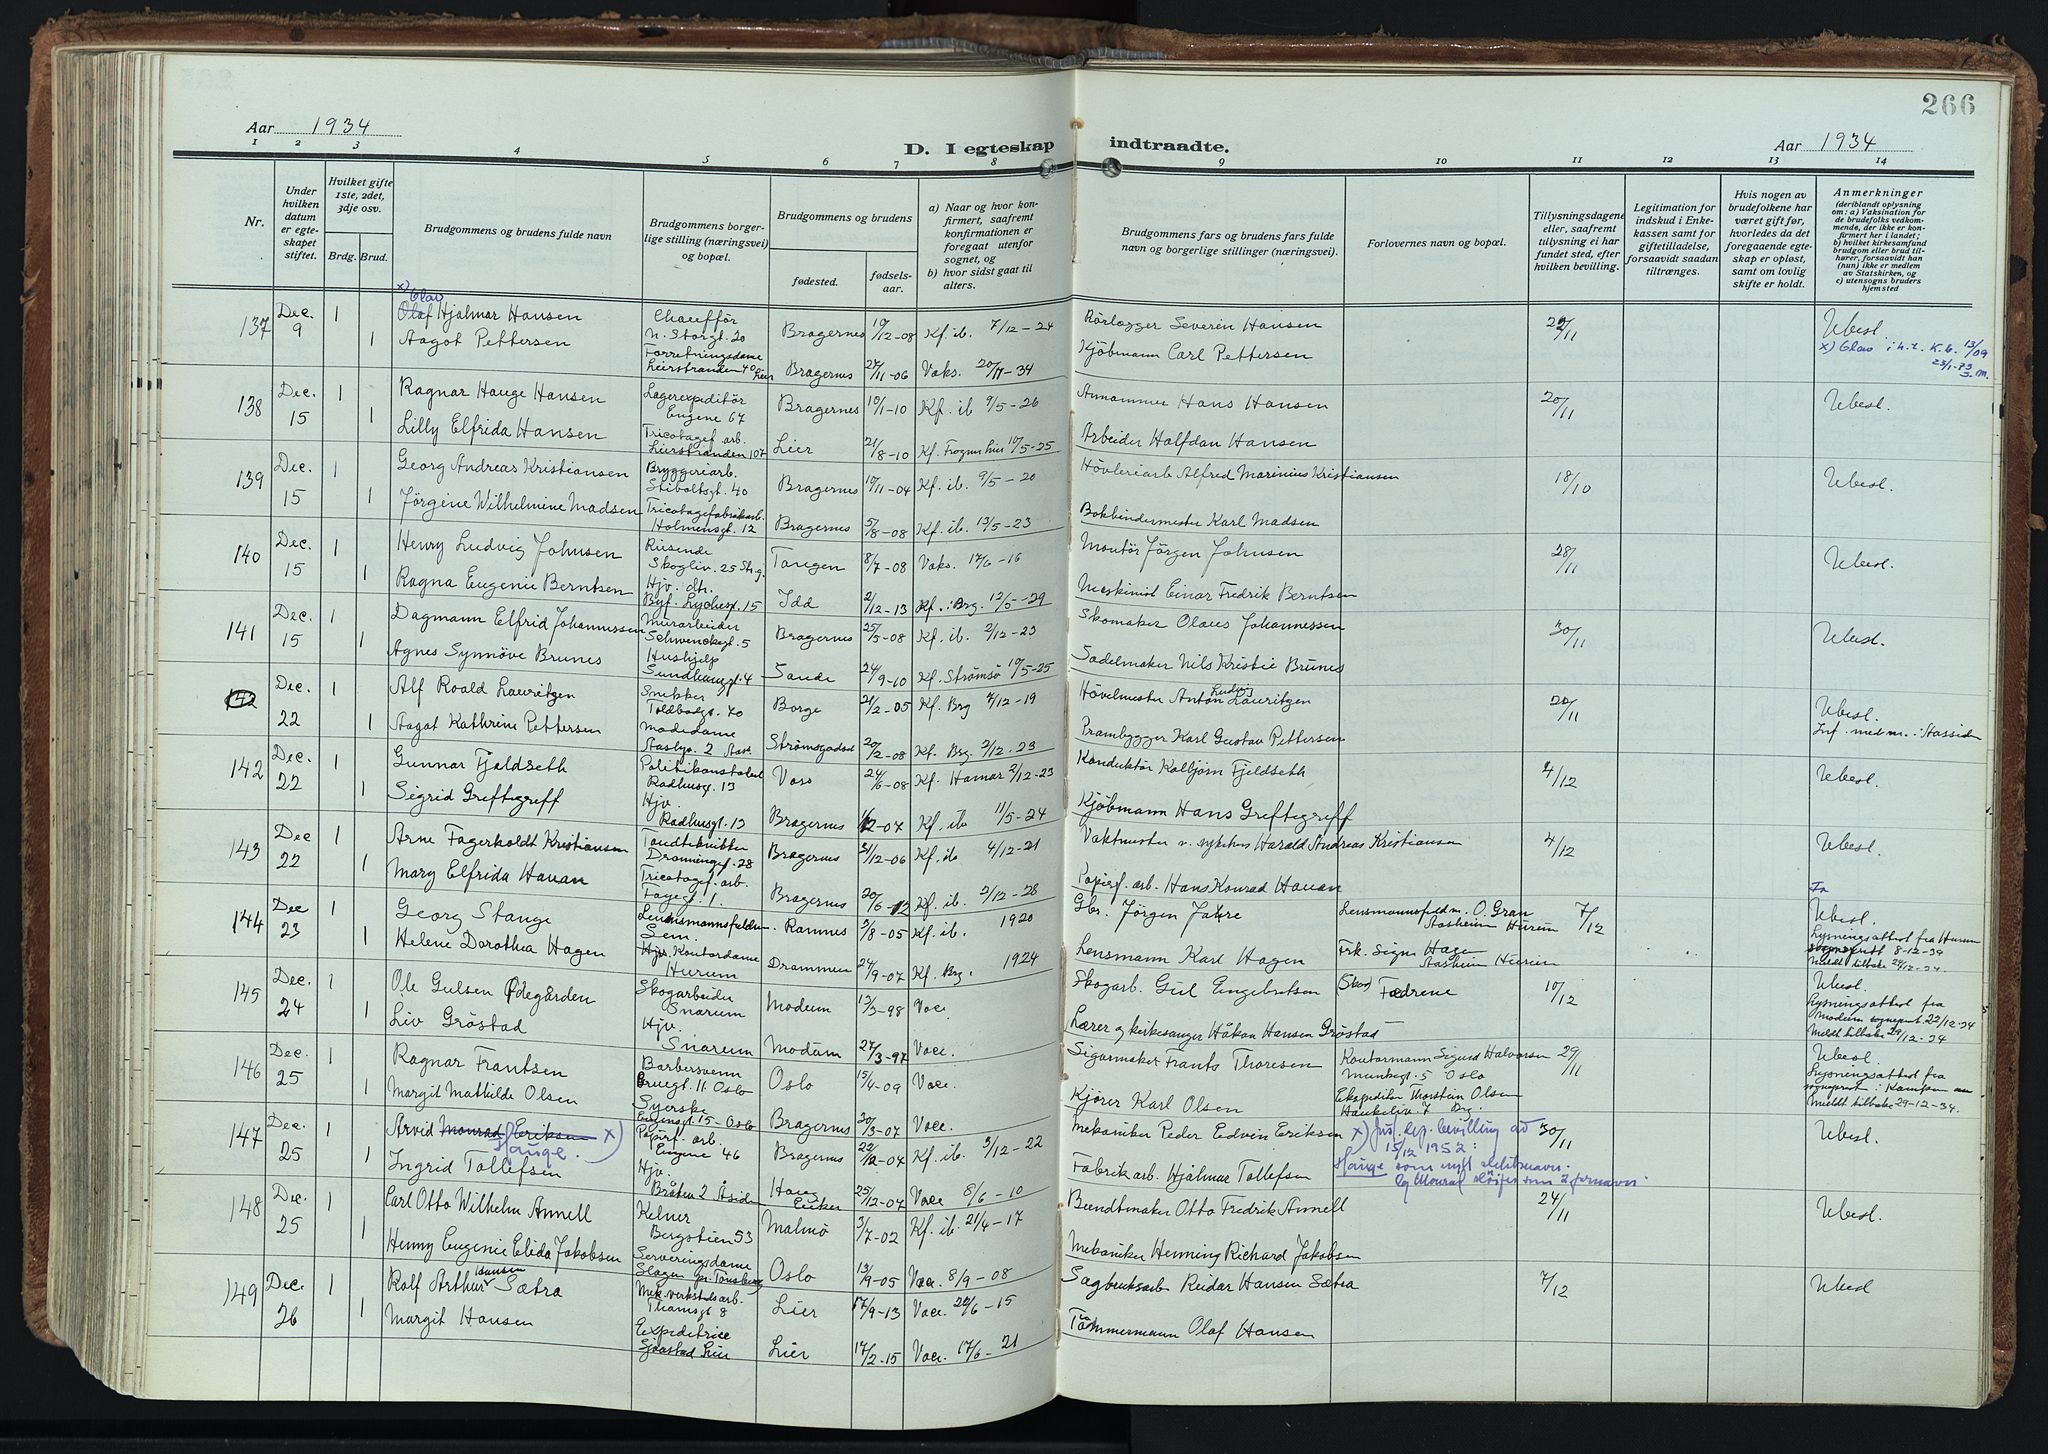 266
Aar 1934
D. I egteskap indtraadte.
Aar 1934
1 2 3 4 5 6 7 8 9 10 11 12 13 14
Nr.
Under hvilken datum er egteskapet stiftet.
Hvilket gifte 1ste, 2det, 3dje osv.
Brdg. Brud.
Brudgommens og brudens fulde navn
Brudgommens borgerlige stilling (næringsvei) og bopæl.
Brudgommens og brudens
fødested. fødselsaar.
a) Naar og hvor konfirmert, saafremt konfirmationen er foregaat utenfor sognet, og
b) hvor sidst gaat til alters.
Brudgommens fars og brudens fars fulde navn og borgerlige stillinger (næringsvei).
Forlovernes navn og bopæl.
Tillysningsdagene eller, saafremt tillysning ei har fundet sted, efter hvilken bevilling.
Legitimation for indskud i Enkekassen samt for giftetilladelse, forsaavidt saadan tiltrænges.
Hvis nogen av brudefolkene har været gift før, hvorledes da det foregaaende egteskap er opløst, samt om lovlig skifte er holdt.
Anmerkninger
(deriblandt oplysning om: a) Vaksination for de brudefolks vedkommende, der ikke er konfirmert her i landet; b) hvilket kirkesamfund brudgom eller brud tilhører, forsaavidt han (hun) ikke er medlem av Statskirken, og c) utensogns bruders hjemsted
x) Olav
137 Dec. 9 1 Olaf Hjalmar Hansen Chauffør N. Storgt. 20 Bragernes 19/12-08 Kf. ib. 7/12-24 Rørlægger Severin Hansen 22/11 Ubesl.
1 Aagot Pettersen Forretningsdame Lierstranden 40 Lier Bragernes 27/11-06 Vaks. 20/11-34 Kjøbmann Carl Pettersen x) Olav i h. t. K.b. 13/09
138 Dec. 15 1 Ragnar Hauge Hansen Lagerexpeditør Engene 67 Bragernes 10/1-10 Kf. ib 9/5-26 Hans Hansen 20/11 Ubesl.
1 Lilly Elfrida Hansen Tricotagef. arb. Lierstranden 107 Lier 21/8-10 Kf. 10/5-25 Arbeider Halfdan Hansen
139 Dec. 15 1 Georg Andreas Kristiansen Bryggeriarb. Stiboltsgt. 40 Bragernes 19/11-04 Kf. ib. 9/5-20 Høvleriarb Alfred Marinius Kristiansen 18/10 Ubesl.
1 Jørgine Wilhelmine Madsen Tricotagefabrikarb. Holmensgt. 12 Bragernes 5/8-08 Kf. ib. 13/5-23 Bokbindermester Karl Madsen
140 Dec. 15 1 Henry Ludvig Johnsen Reisende Skogliv. 25 Str.g. Tangen 8/7-08 Vaks. 17/6-16 Montør Jørgen Johnsen 28/11 Ubesl.
1 Ragna Eugenie Berntsen Hjv. dtr. Idd 2/12-13 Kf. i Brg. 12/5-29 Maskinist Einar Fredrik Berntsen
141 Dec. 15 1 Dagmann Elfrid Johannessen Murarbeider Schwenckegt. 5 Bragernes 25/5-08 Kf. ib. 2/12-23 Skomaker Olaus Johannessen 30/11 Ubesl.
1 Agnes Synnøve Brunes Hushjelp Sundhaugt. 4 Sande 24/9-10 Kf. Strømsø 10/5-25 Sadelmaker Nils Kristie Brunes
142 Dec. 22 1 Alf Roald Lauritzen Snekker Toldbodgt. 70 Borge 21/2-05 Kf. Brg 7/12-19 Høvelmester Anton Ludvig Lauritzen 20/11 Ubesl.
1 Aagot Kathrine Pettersen Modedame Strømsgodset 20/2-08 Kf. Brg. 2/12-23 Prambygger Karl Gustav Pettersen
142 Dec. 22 1 Gunnar Fjeldseth Politikonstabel Raadhusgt. 13 Voss 24/6-08 Kf. Hamar 2/12-23 Konduktør Kolbjørn Fjeldseth 4/12 Ubesl.
1 Sigrid Greftegreff Hjv. Raadhusgt. 13 Bragernes Kf. ib 11/5-24 Kjøbmann Hans Greftegreff
143 Dec 22 1 Arne Fagerholdt Kristiansen Tandtekniker Dronningsgt. 28 Bragernes 31/12-06 Kf. ib 4/12-21 Vaktmester v. sykehus Harald Andreas Kristiansen 4/12 Ubesl.
1 Mary Elfrida Hauan Tricotagef. arb. Fayegt. 1. Bragernes 20/6-12 Kf. ib. 2/12-28 Papirf. arb. Hans Konrad Hauan
144 Dec 23 1 Georg Stange Lensmannsfuldm. Sem. Ramnes 5/8-05 Kf. ib. 1920 Gbr. Jørgen Jahre Lensmannsfuldm. O. Gran Aasheim Hurum 7/12 Ubesl.
1 Helene Dorothea Hagen Kontordame Hurum Drammen 24/9-07 Kf. Brg. 1924 Lensmann Karl Hagen Frk. Signe Hagen Aasheim Hurum Lysningsattest fra Hurum sogneprest 8-12-34 Meldt tilbake 29/12-34.
145 Dec. 24 1 Ole Gulsen Ødegården Skogarbeider Snarum Modum 13/3-98 Vacc. Skogarb. Gul Engebretsen Fædrene 10/12 Ubesl.
1 Liv Grøstad Hjv. Snarum Modum 27/3-97 Vacc. Lærer og kirkesanger Håkon Hansen Grøstad Lysningsattest fra Modum sogneprest. 22/12-34 Meldt tilbake 29/12-34
146 Dec. 25 1 Ragnar Frantsen Barbersvenn Bruegt. 11 Oslo Oslo 15/4-09 Vacc. Sigarmaker Frants Thoresen Kontormann Sigurd Halvorsen Munkegt. 5 Oslo 29/11 Ubesl.
1 Margit Mathilde Olsen Syerske Bragernes 30/3-07 Vacc. Kjører Karl Olsen Ekspeditør Thorstein Olsen Haukeliv. 7 Drg. Lysningsattest fra sogneprest i Kampen Meldt tilbake 29-12-34.
147 Dec. 25 1 Arvid Monrad Eriksen x) Hauge. Papirf. arb. Engene 46 Bragernes 22/12-04 Kf. ib. 3/12-22 Mekaniker Peder Edvin Eriksen x) Just. dep. bevilling av 15/12 1952: Hauge som nytt slektsnavn. Og Monrad sløifes som 2 fornavn. 30/11 Ubesl.
1 Ingrid Tollefsen Hjv. Bråten 2 Åsiden 25/12-07 Vacc 8/6-10 Fabrikarb. Hjalmar Tollefsen
148 Dec. 25 1 Carl Otto Wilhelm Annell Kelner Bergstien 53 Malmø 3/7-02 Kf. ib. 21/4-17 Buntmaker Otto Fredrik Annell 24/11 Ubesl.
1 Henny Eugenie Elida Jakobsen Serveringsdame Slagen pr. Tønsberg Oslo 13/9-05 Vacc. 8/9-08 Mekaniker Henning Richard Jakobsen
149 Dec. 26 1 Rolf Arthur Hansen Sætra Mek. verkstedsarb. Thamsgt 8 Lier 17/9-13 Vacc. 22/6-15 Sagbruksarb Reidar Hansen Sætra 7/12 Ubesl
1 Margit Hansen Expeditrice Gjøstad Lier Lier 17/2-15 Vacc. 17/6-21 Tømmermann Olaf Hansen